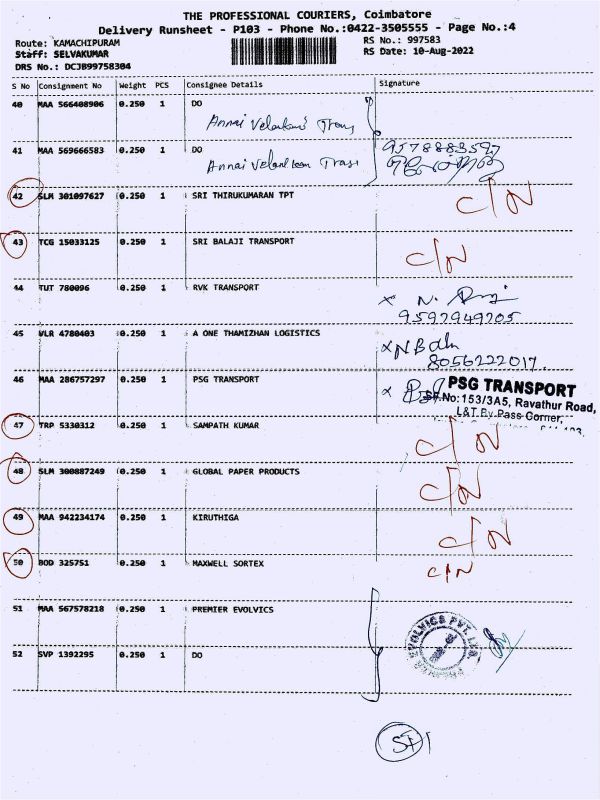 THE PROFESSIONAL COURIERS, Coimbatore
Delivery Runsheet - P103 - Phone No.:0422-3505555 - Page No.:4
Route: KAMACHIPURAM
RS No.: 997583
Staff: SELVAKUMAR
RS Date: 10-Aug-2022
DRS No.: DCJB99758304
S No Consignment No Weight PCS Consignee Details Signature
40 MAA 566408906 0.250 1 DO
Annai Velankani Trans
41 MAA 569666583 0.250 1 DO
9578883597
Annai Velankani Trans
42 SLM 301097627 0.250 1 SRI THIRUKUMARAN TPT C/N
43 TCG 15033125 0.250 1 SRI BALAJI TRANSPORT C/N
44 TUT 780096 0.250 1 RVK TRANSPORT
9597949205
45 VLR 4780403 0.250 1 A ONE THAMIZHAN LOGISTICS
8056222017
46 MAA 286757297 0.250 1 PSG TRANSPORT
PSG TRANSPORT
SF.No:153/3A5, Ravathur Road,
L&T By Pass Corner,
47 TRP 5330312 0.250 1 SAMPATH KUMAR C/N
48 SLM 300887249 0.250 1 GLOBAL PAPER PRODUCTS C/N
49 MAA 942234174 0.250 1 KIRUTHIGA C/N
50 BOD 325751 0.250 1 MAXWELL SORTEX C/N
51 MAA 567578218 0.250 1 PREMIER EVOLVICS
52 SVP 1392295 0.250 1 DO